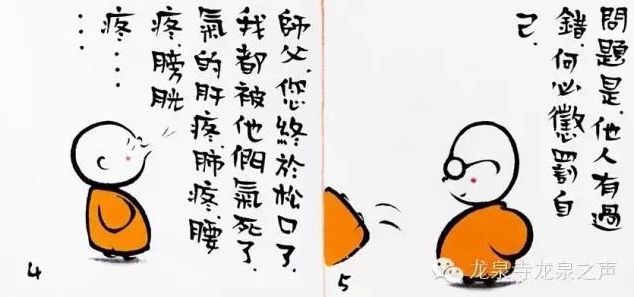 師父,您終於松口了.
我都被他們氣死了.
氣的肝疼.肺疼.腰
疼.膀胱
疼...
...
4
問題是,他人有過
錯,何必懲罰自
己.
5
龙泉寺龙泉之声